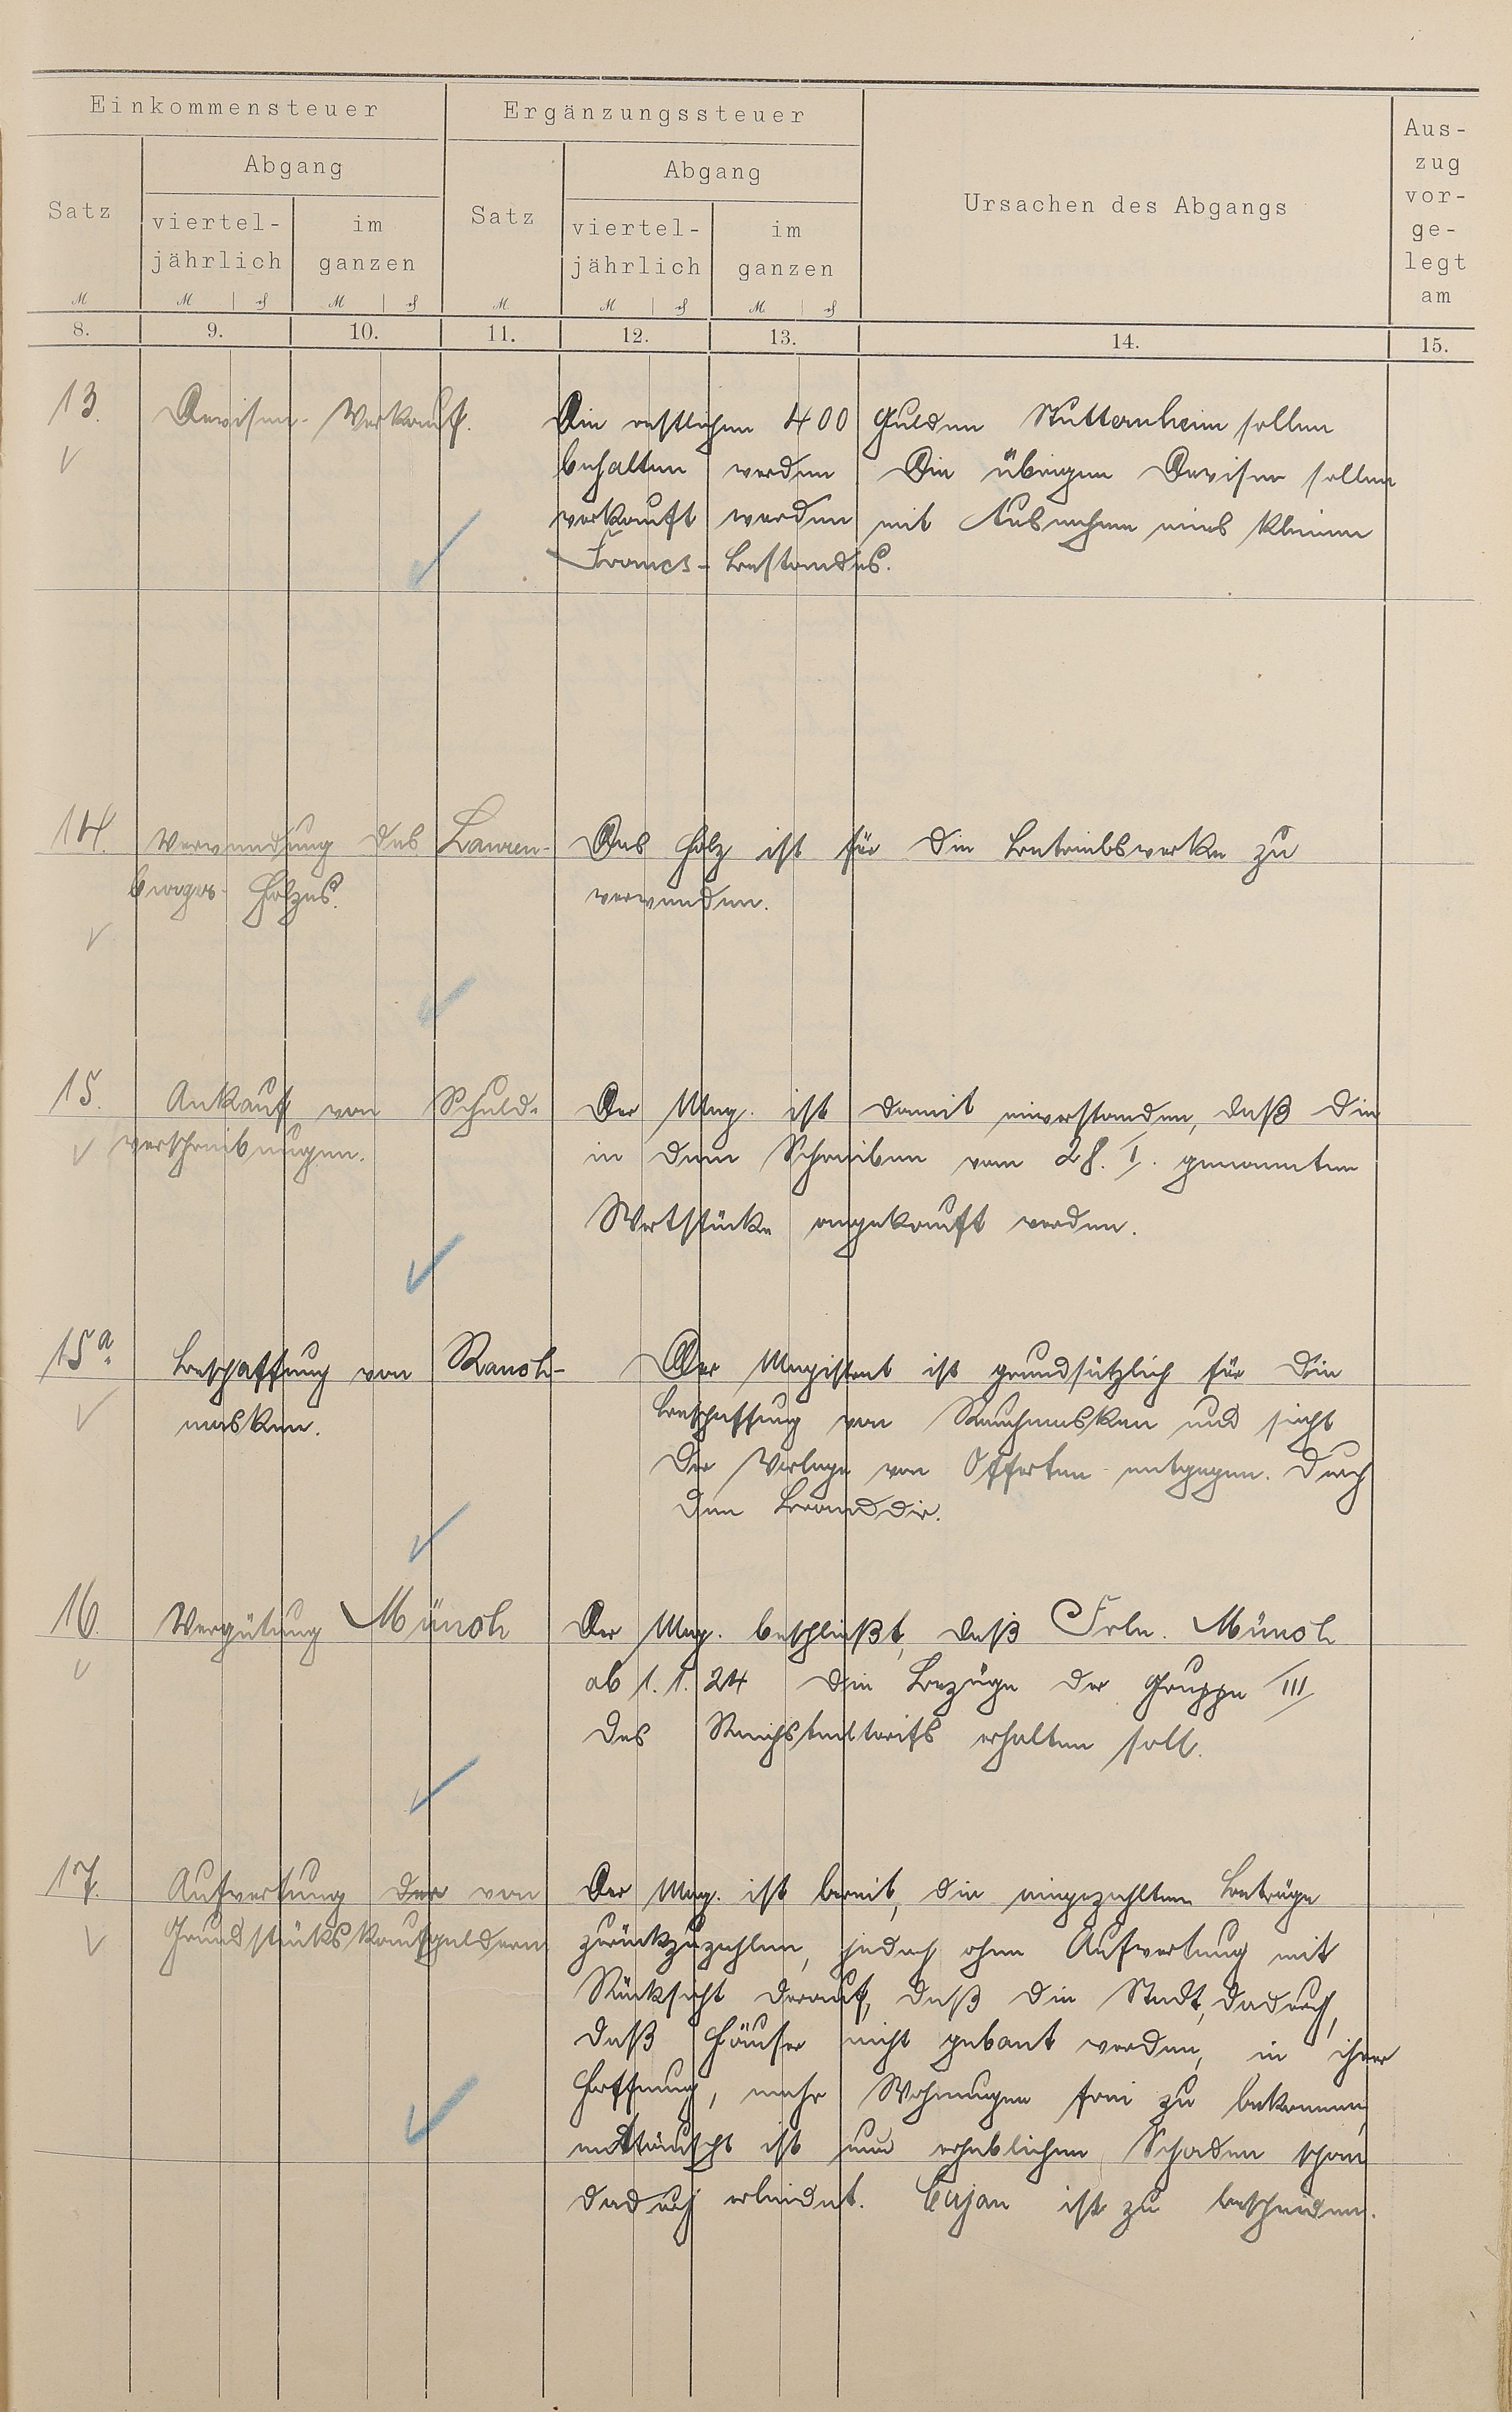 Einkommensteuer
Ergänzungssteuer
Ursachen des Abgangs
Aus-
zug
vor-
ge-
legt
am
Satz
Abgang
viertel-
jährlich
im
ganzen
Satz
Abgang
viertel-
jährlich
im
ganzen
M
M
₰
M
₰
M
M
₰
M
₰
8.
9.
10.
11.
12.
13.
14.
15.
13.
Devisen-Verkauf.
Die restlichen 400 Gulden Stutternheim sollen
behalten werden Die übrigen Devisen sollen
verkauft werden mit Ausnahme eines kleinen
Francs-Bestandes.
14.
Verwendung des Lauren-
burger Holzes.
Das Holz ist für die Betriebswerke zu
verwenden.
15.
Ankauf von Schuld-
verschreibungen.
Der Mag. ist damit einverstanden, daß die
in dem Schreiben vom 28. I. genannten
Wertstücke angekauft werden.
15a.
Beschaffung von Rauch-
masken.
Der Magistrat ist grundsätzlich für die
Beschaffung von Rauchmasken und sieht
der Vorlage von Offerten entgegen. durch
den Branddir.
16.
Vergütung Münch
Der Mag. beschließt, daß Frln. Münch
ab 1.1.24 die Bezüge der Gruppe III
des Reichstariftarifs erhalten soll.
17.
Aufwertung der von
Grundstückskaufgeldern
Der Mag. ist bereit, die eingezahlten Beträge
zurückzuzahlen, jedoch ohne Aufwertung mit
Rücksicht darauf, daß die Stadt, dadurch,
daß Häuser nicht gebaut werden, in ihrer
Hoffnung, mehr Wohnungen frei zu bekommen,
enttäuscht ist und erheblichen Schaden schon
dadurch erleidet. Cujan ist zu bescheiden.